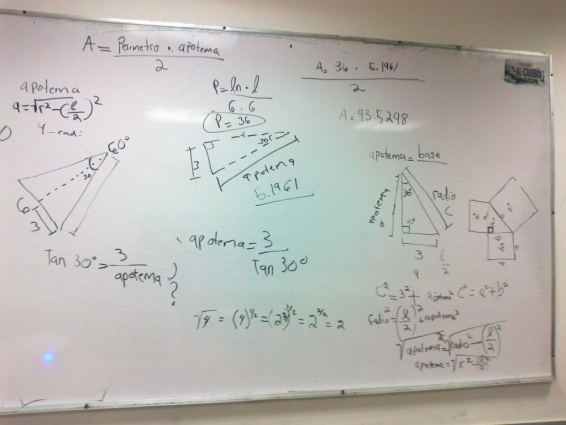 A = Perimetro · apotema
2
apotema
a = √r² - (l/2)²
r = radi
60°
30°
6
3
Tan 30° = 3
apotema
?
?
P = ln · l
6 · 6
P = 36
3
30°
apotema
5.1961
apotema = 3
Tan 30°
√4 = (4)^1/2 = (2²)^1/2 = 2^2/2 = 2
A = 36 · 5.1961
2
A = 93.5298
apotema = base
apotema
30°
radio
C
3
l
2
C² = 3² +
C² = a² + b²
radio² = (l/2)² + apotema²
√apotema² = √radio² - (l/2)²